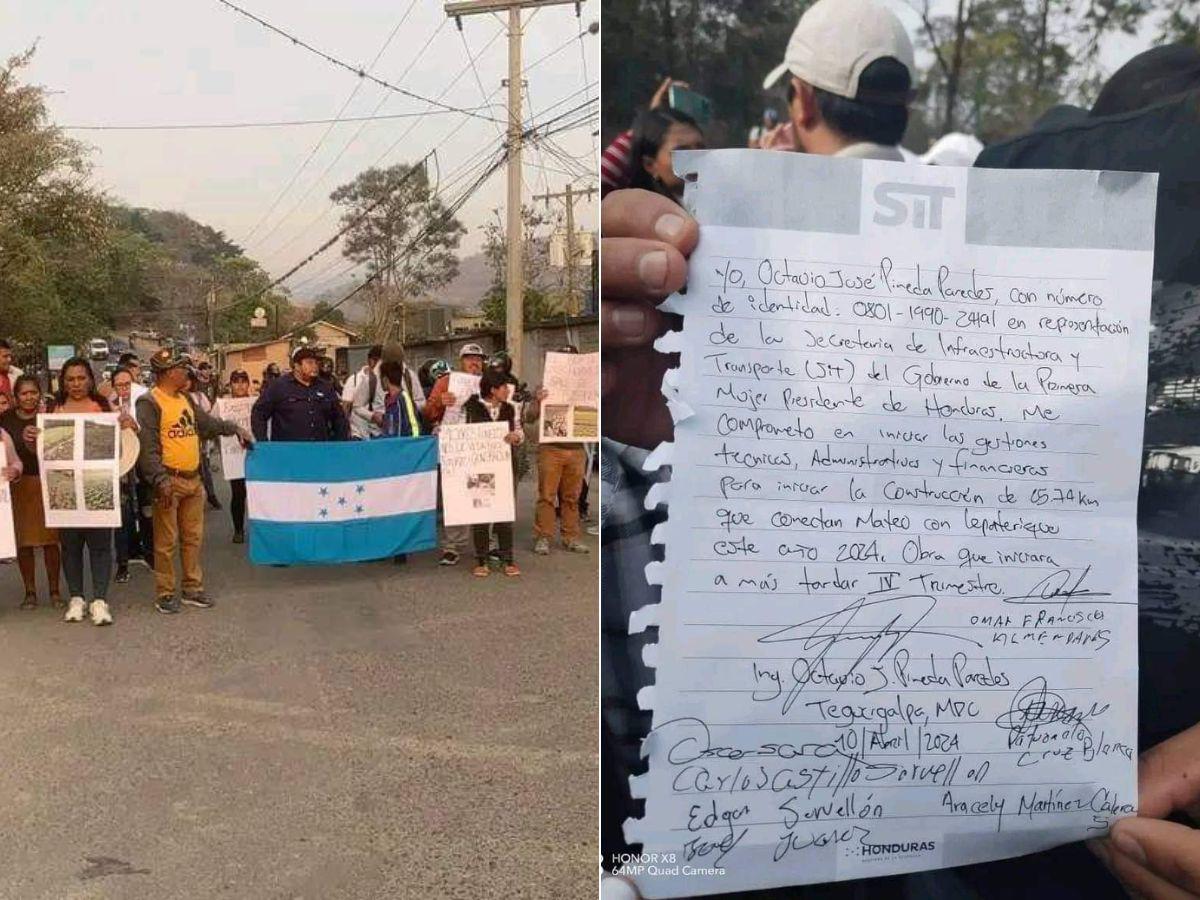 adidas
SiT
Yo, Octavio José Pineda Paredes, con número
de identidad. 0801-1990-24191 en representación
de la Secretaria de Infraestructora y
Transporte (SiT) del Gobierno de la Primera
Mujer Presidente de Honduras. Me
comprometo en iniciar las gestiones
tecnicas, Administrativas y financieras
para iniciar la Construcción de 15.74 km
que conectan Mateo con lepaterique
este año 2024. Obra que iniciara
a más tardar IV Trimestre.
OMAR FRANCISCO
Ing. Octavio J. Pineda Paredes
Tegucigalpa, MDC
10/Abril/2024
Oscar
Cruz Blanca
Carlos Castillo Servellon
Edgar Servellón
Aracely Martínez Calera
Juarez
HONDURAS
HONOR X8
64MP Quad Camera